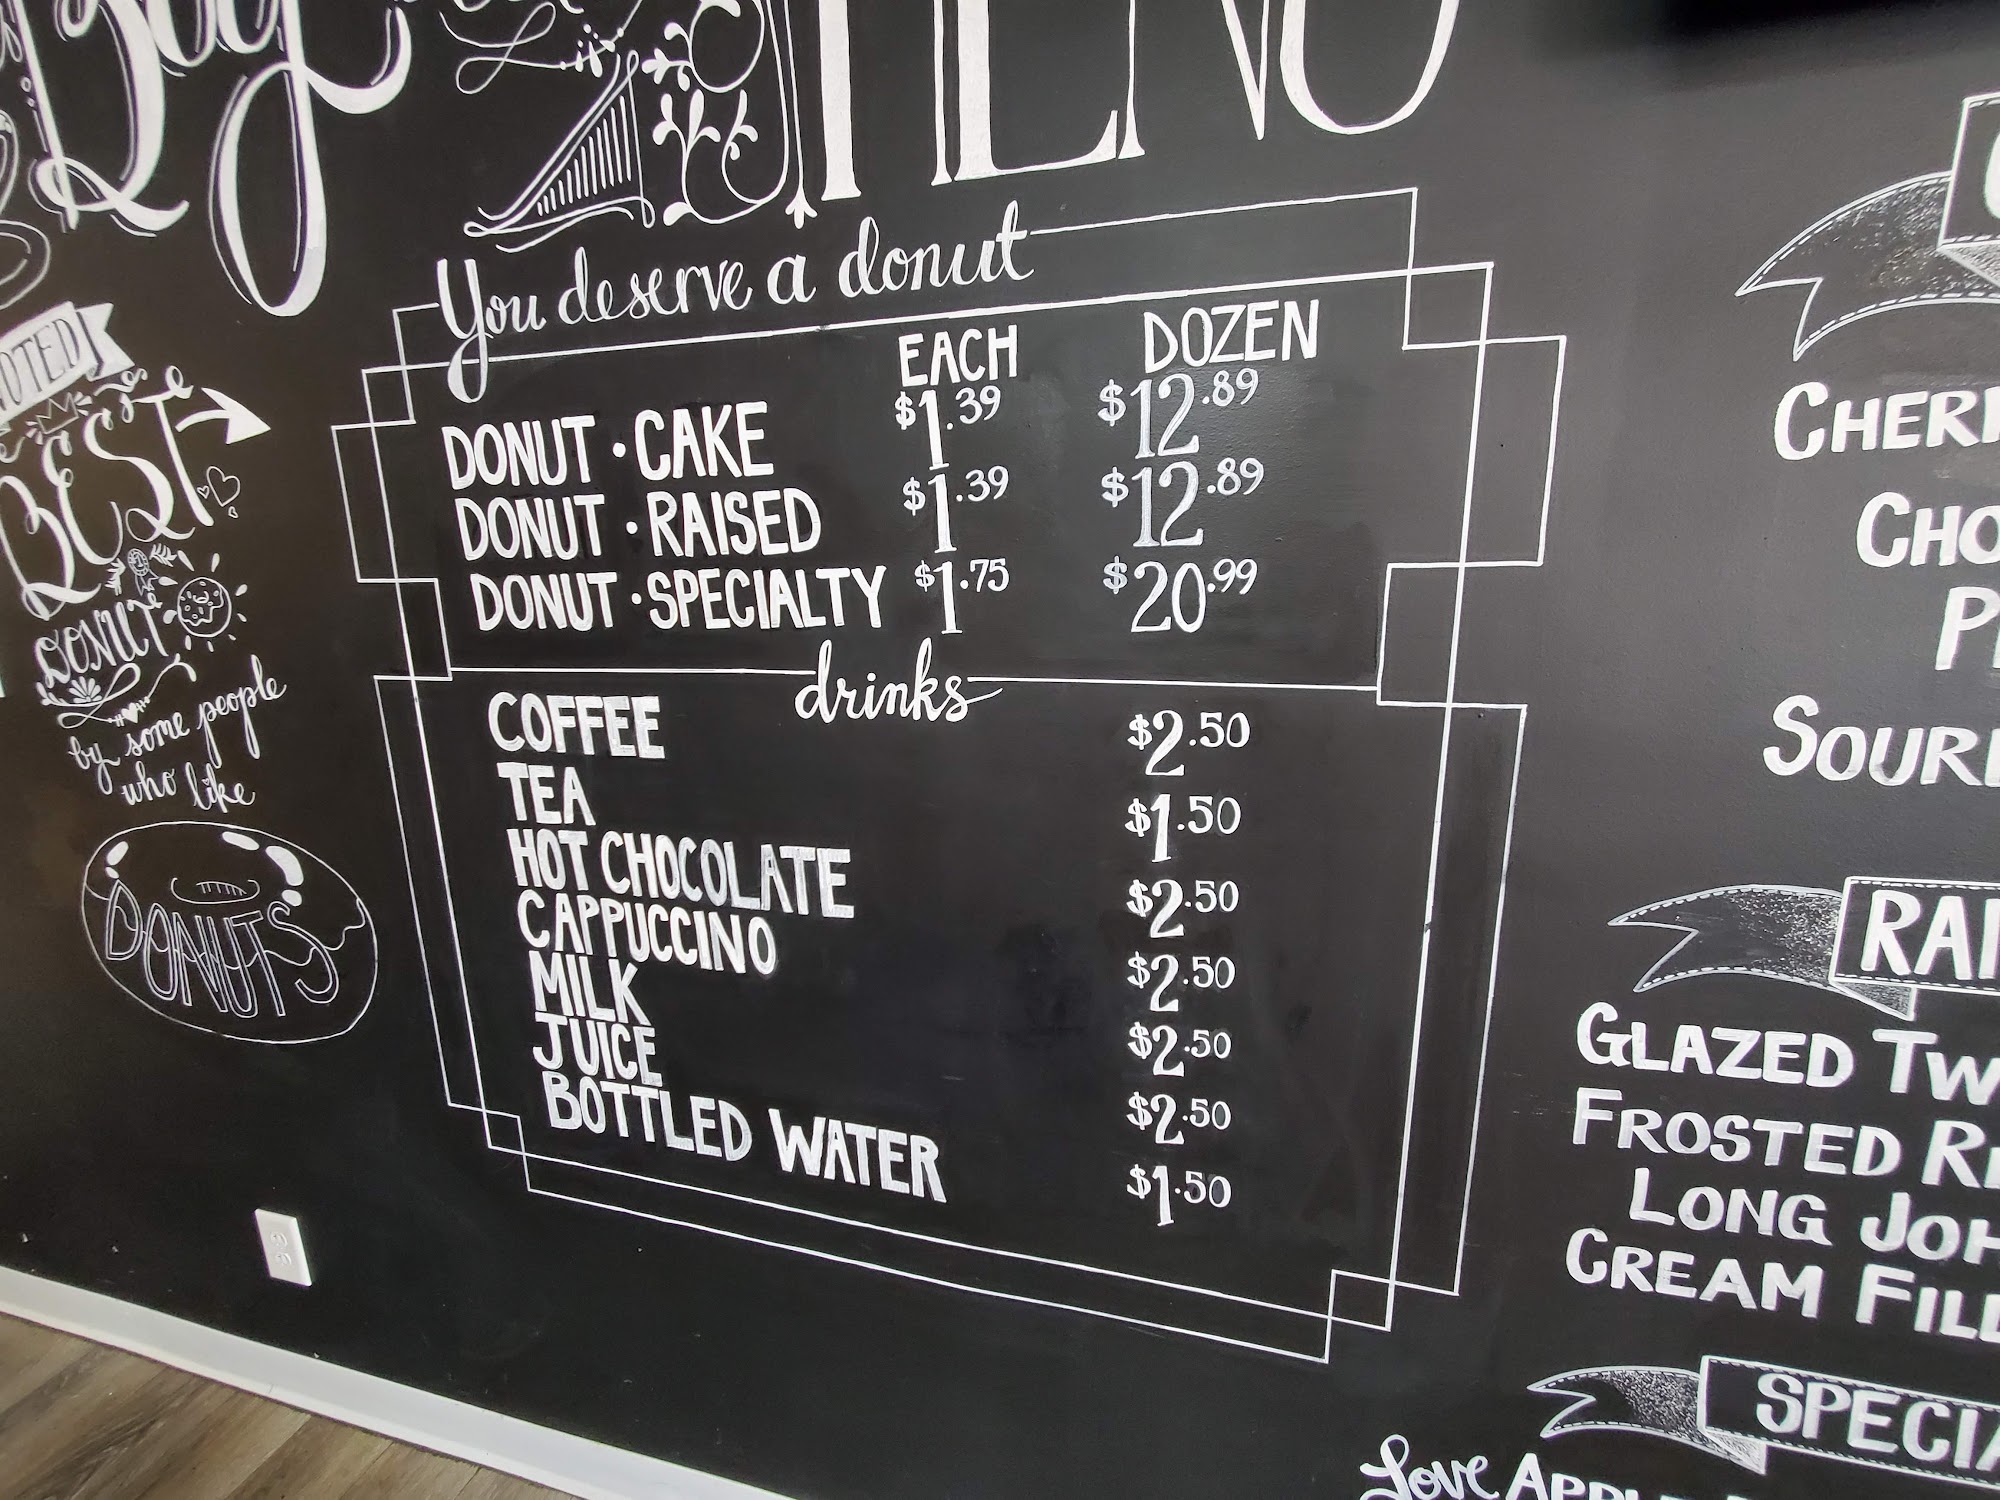 Boy
MENU
You deserve a donut
EACH DOZEN
DONUT · CAKE $1.39 $12.89
DONUT · RAISED $1.39 $12.89
DONUT · SPECIALTY $1.75 $20.99
drinks
COFFEE $2.50
TEA $1.50
HOT CHOCOLATE $2.50
CAPPUCCINO $2.50
MILK $2.50
JUICE $2.50
BOTTLED WATER $1.50
BEST
DONUT
by some people
who like
DONUTS
GLAZED
FROSTED
LONG
CREAM
Love